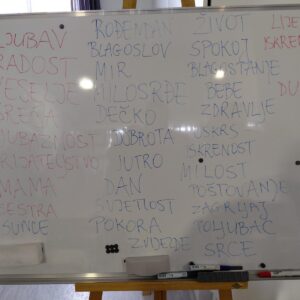 LJUBAV
RADOST
VESELJE
SREĆA
LJUBAZNOST
PRIJATELJSTVO
MAMA
SESTRA
SUNCE
ROĐENDAN
BLAGOSLOV
MIR
MILOSRĐE
DEČKO
DOBROTA
JUTRO
DAN
SVJETLOST
POKORA
ŽIVOT
SPOKOJ
BLAGOSTANJE
BEBE
ZDRAVLJE
USKRS
ISKRENOST
MILOST
POŠTOVANJE
ZAGRLJAJ
POLJUBAC
SRCE